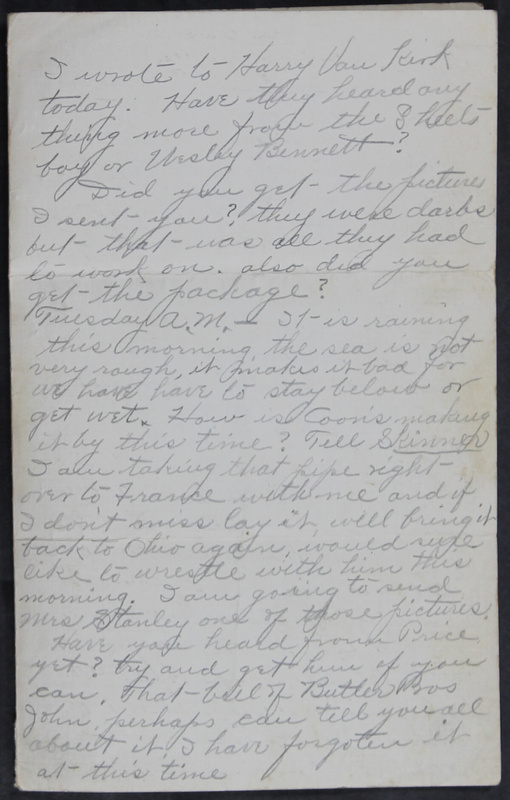 I wrote to Harry Van Kirk
today. Have they heard any
thing more from the Sheets
boy or Wesley Bennett?
Did you get the pictures
I sent you? they were darbs
but that was all they had
to work on. also did you
get the package?
Tuesday A.M. — It is raining
this morning, the sea is not
very rough, it makes it bad for
we have have to stay below or
get wet. How is Coons making
it by this time? Tell Skinner
I am taking that pipe right
over to France with me and if
I don't miss lay it, will bring it
back to Ohio again, would sure
like to wrestle with him this
morning. I am going to send
Mrs Stanley one of those pictures.
Have you heard from Price
yet? try and get him if you
can, that bill of Butler Bos
John, perhaps can tell you all
about it, I have forgoten it
at this time